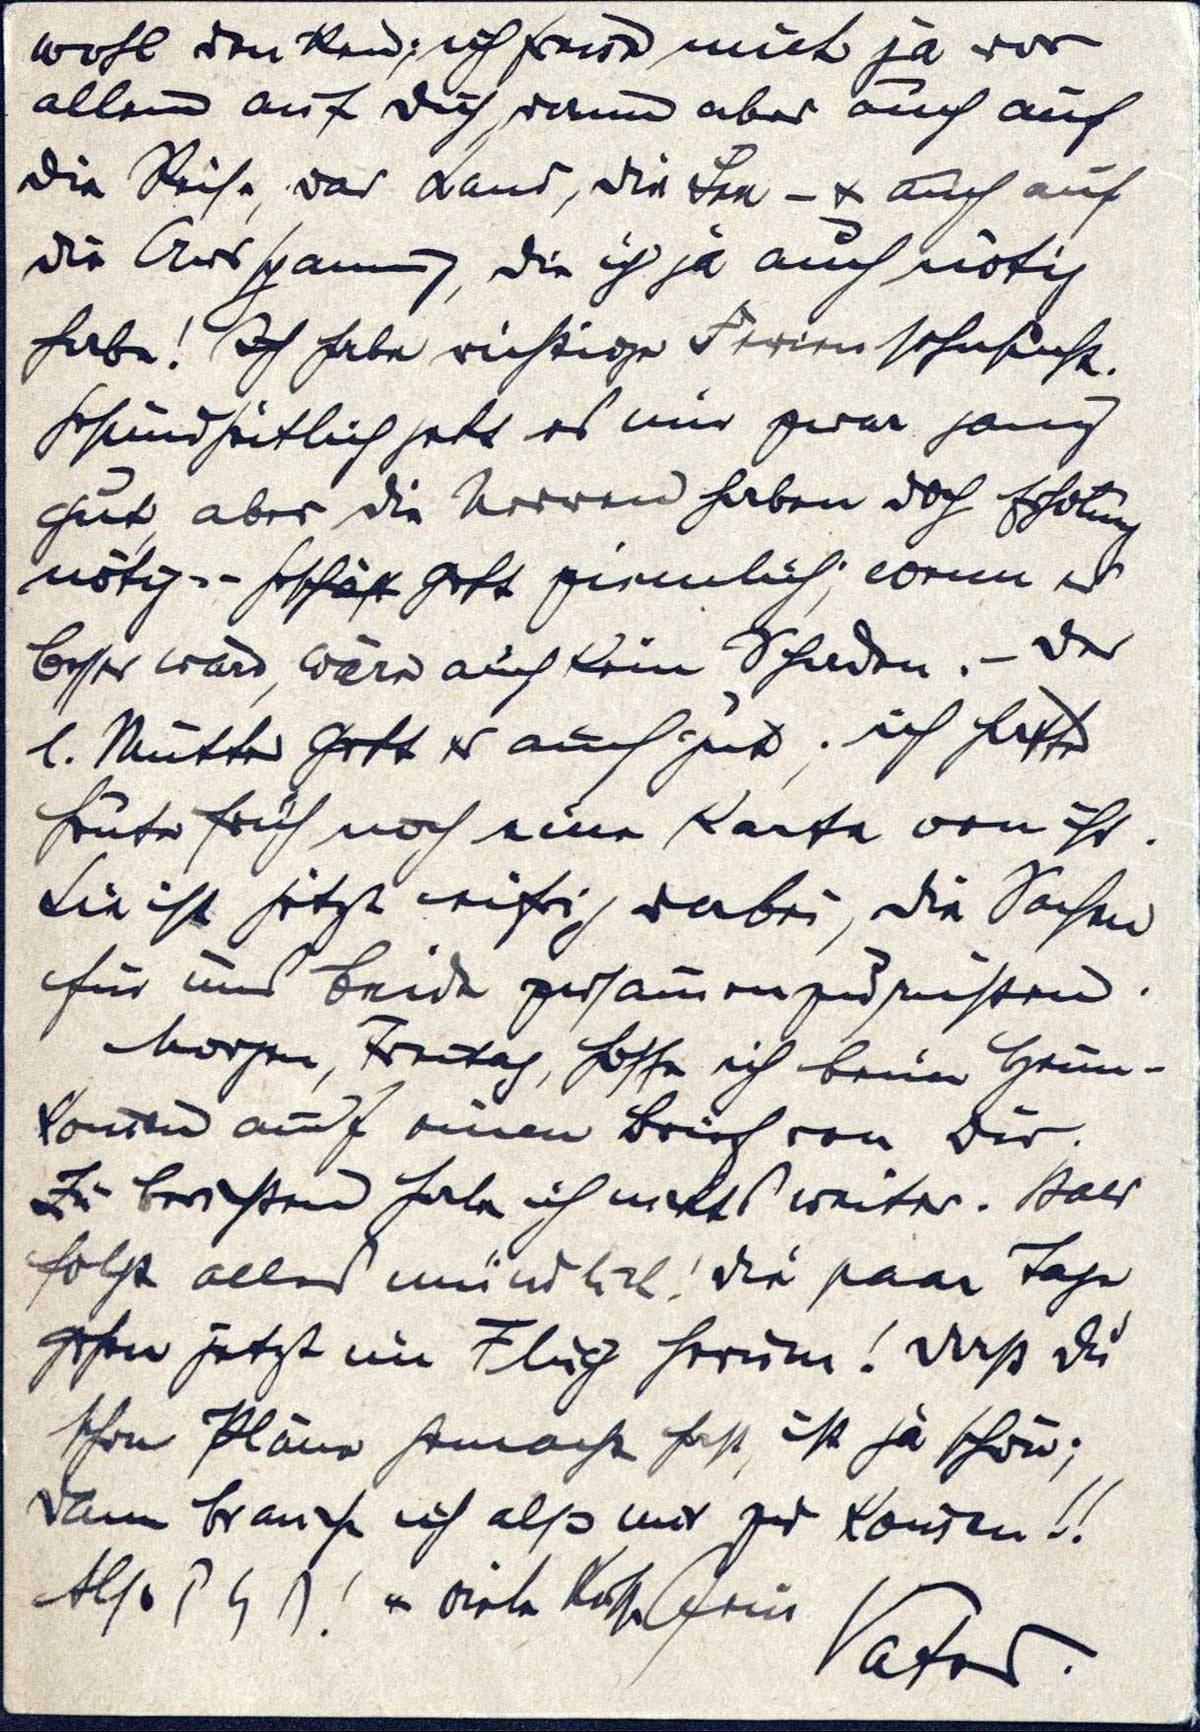 wohl denken; ich freue mich ja vor
allem auf Dich, dann aber auch auf
die Reise, das Land, die See – & auch auf
die Ausspannung, die ich ja auch nötig
habe! Ich habe richtige Feriensehnsucht.
Gesundheitlich geht es mir zwar ganz
gut, aber die Nerven haben doch Erholung
nötig. – Geschäft geht ziemlich; wenn es
besser wäre, wäre auch kein Schaden. – Der
l. Mutter geht es auch gut; ich hatte
heute früh noch eine Karte von ihr.
Sie ist jetzt eifrig dabei, die Sachen
für uns beide zusammenzurichten.
Morgen, Freitag, hoffe ich beim Heim-
kommen auf einen Brief von Dir.
Zu berichten habe ich nichts weiter. Das
folgt alles mündlich! Die paar Tage
gehen jetzt im Flug herum! Daß Du
schon Pläne gemacht hast, ist ja schön;
dann brauch ich also nur zu kommen!!
Also ! & viele Küsse Dein
Vater.